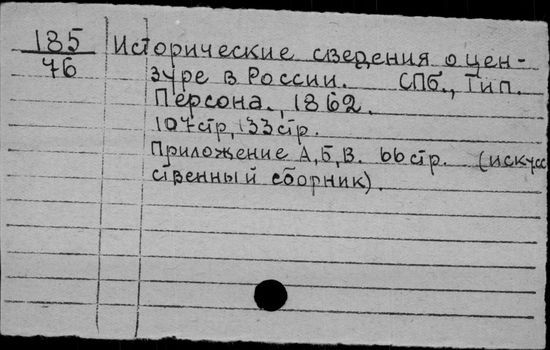 185
76
Исторические сведения о цен-
зуре в России. СПб., Тип.
Персона, 1862.
107стр, 133стр.
Приложение А, Б, В. 66стр. (искусс
ственный сборник).